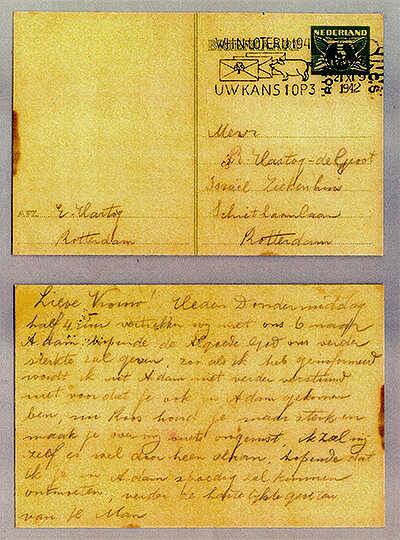 WIJNLOTERIJ 194
NEDERLAND
UW KANS 1 OP 3
1942
Mevr
R. Hartog-de Groot
Israël Ziekenhuis
Schietbaanlaan
Rotterdam
AFZ. E. Hartog
Rotterdam
Lieve Vrouw! Heden Dondermiddag
half 4 uur vertrekken wij met ons 6 naar
A'dam hopende de Algoede God ons verder
sterkte zal geven, zoo als ik heb geinformeerd
wordt ik uit A'dam niet verder verstuurd
niet voor dat je ook in A'dam gekomen
ben, nu Roos houd je maar sterk en
maak je over mij niets ongerust, ik zal mij
zelf er wel door heen slaan, hopende dat
ik je in A'dam spoedig zal kunnen
ontmoeten, verder de hartelijkste groeten
van je Man